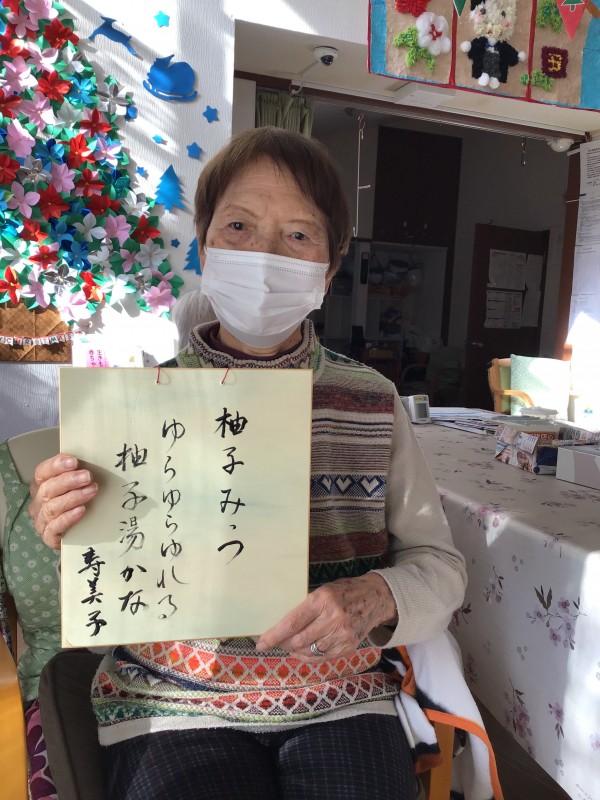 柚子みっつ
ゆらゆらゆれる
柚子湯かな
寿美子